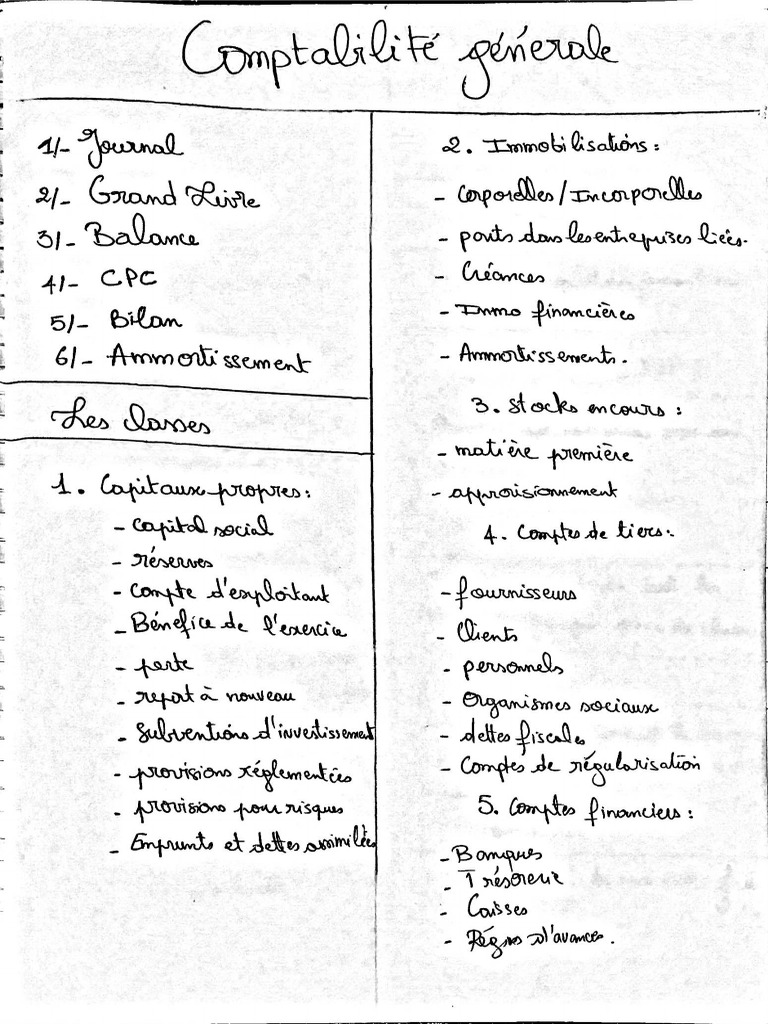 Comptabilité génerale
1/- Journal
2/- Grand Livre
3/- Balance
4/- CPC
5/- Bilan
6/- Ammortissement
Les classes
1. Capitaux propres:
- capital social
- réserves
- compte d'exploitant
- Bénefice de l'exercice
- perte
- report à nouveau
- Subventions d'investissement
- provisions réglementées
- provisions pour risques
- Emprunts et dettes assimilés
2. Immobilisations:
- Corporelles/Incorporelles
- parts dans les entreprises liées.
- Créances
- Immo financières
- Ammortissements.
3. Stocks encours:
- matière première
- approvisionnement
4. Comptes de tiers:
- fournisseurs
- Clients
- personnels
- Organismes sociaux
- dettes fiscales
- Comptes de régularisation
5. Comptes financiers:
- Banques
- Trésorerie
- Caisses
- d'avances.